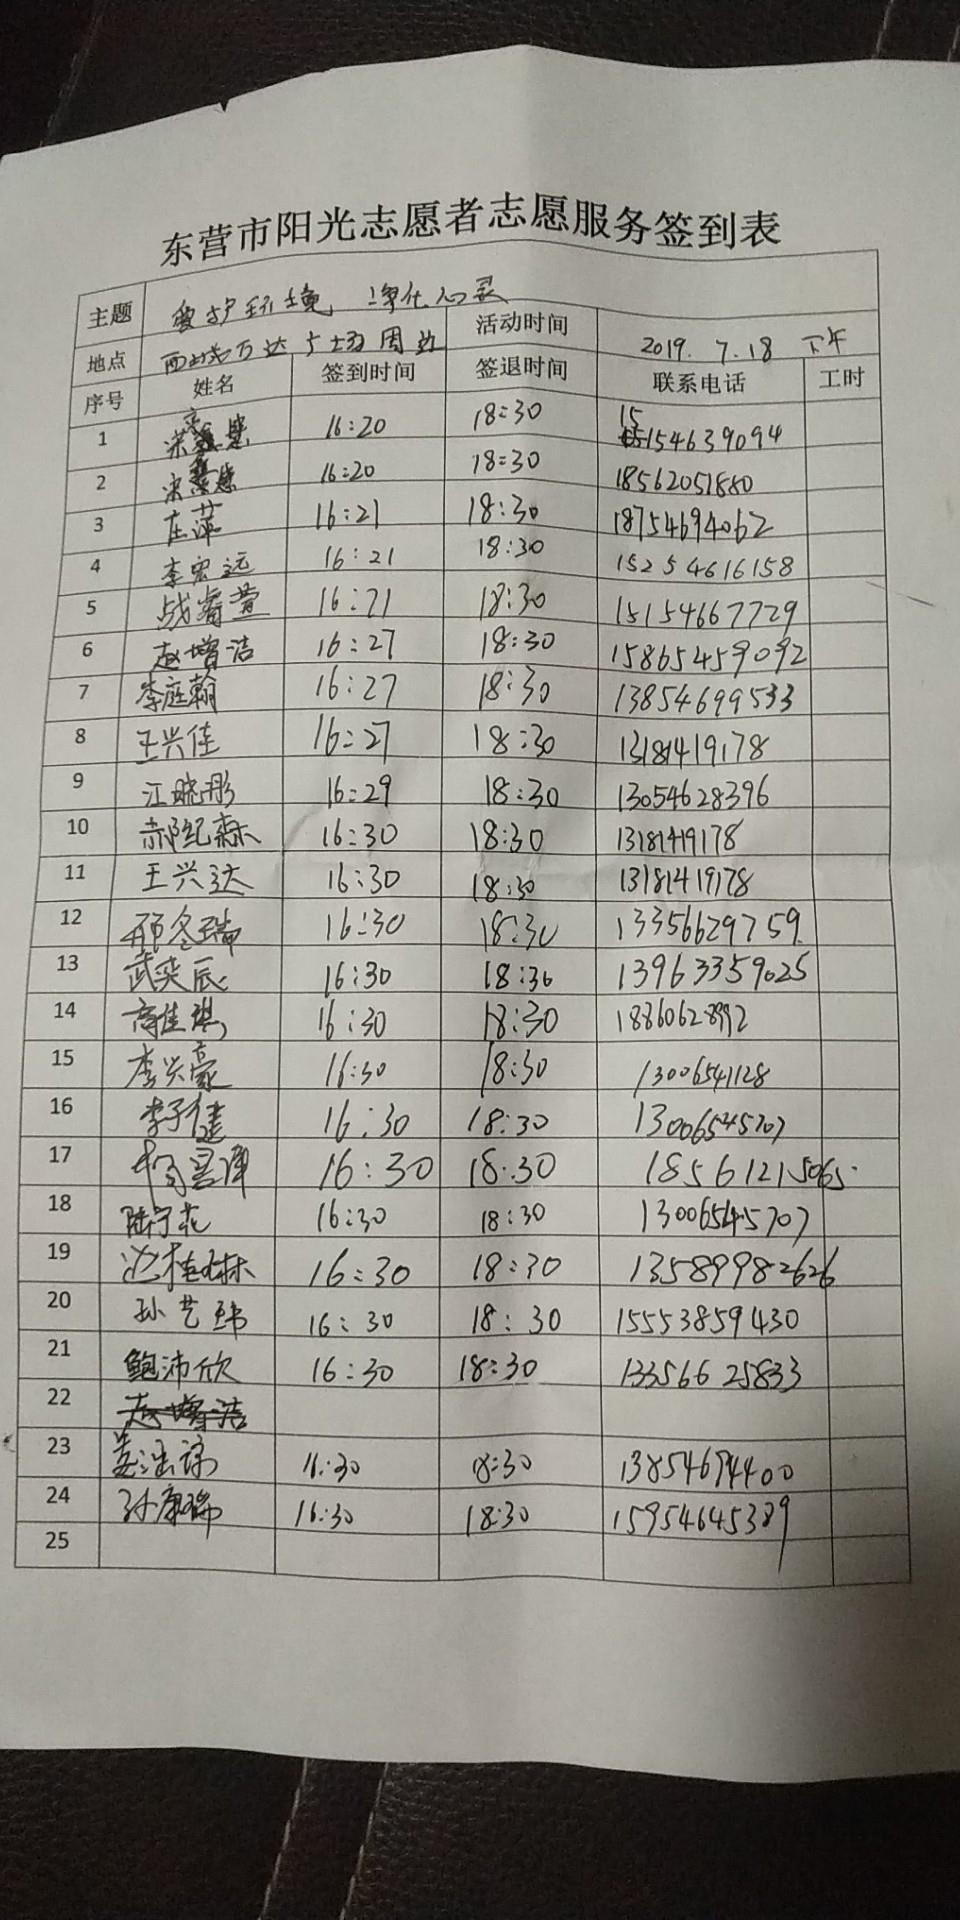 东营市阳光志愿者志愿服务签到表
主题 爱护环境，净化心灵
地点 西城万达广场周边 活动时间 2019.7.18 下午
序号 姓名 签到时间 签退时间 联系电话 工时
1 宋 16:20 18:30 15 154639094
2 宋 16:20 18:30 18562051880
3 庄萍 16:21 18:30 18754694062
4 李宏远 16:21 18:30 15254616158
5 战睿萱 16:21 18:30 15154667729
6 赵增洁 16:27 18:30 15865459092
7 李庭翰 16:27 18:30 13854699533
8 王兴佳 16:27 18:30 13181419178
9 江晓彤 16:29 18:30 13054628396
10 郝纪森 16:30 18:30 13181419178
11 王兴达 16:30 18:30 13181419178
12 邢冬瑞 16:30 18:30 13356629759
13 武奕辰 16:30 18:30 13963359025
14 高佳琪 16:30 18:30
15 李兴豪 16:30 18:30 13006541128
16 李子健 16:30 18:30 13006545707
17 杨昊谭 16:30 18:30 18561215065
18 陆宁花 16:30 18:30 13006545707
19 边桂林 16:30 18:30 13589982626
20 孙艺玮 16:30 18:30 15553859430
21 鲍沛欣 16:30 18:30 13356625833
22 赵增洁
23 姜涵 16:30 18:30 13854694400
24 孙康瑞 16:30 18:30 15954645389
25